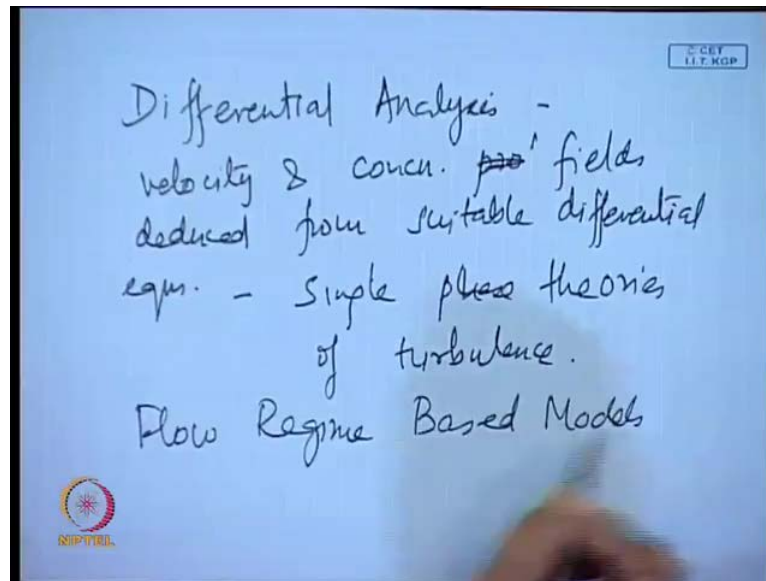 © CET
I.I.T. KGP
Differential Analysis -
velocity & concn. fields
deduced from suitable differential
eqns. - Single phase theories
of turbulence.
Flow Regime Based Models
NPTEL